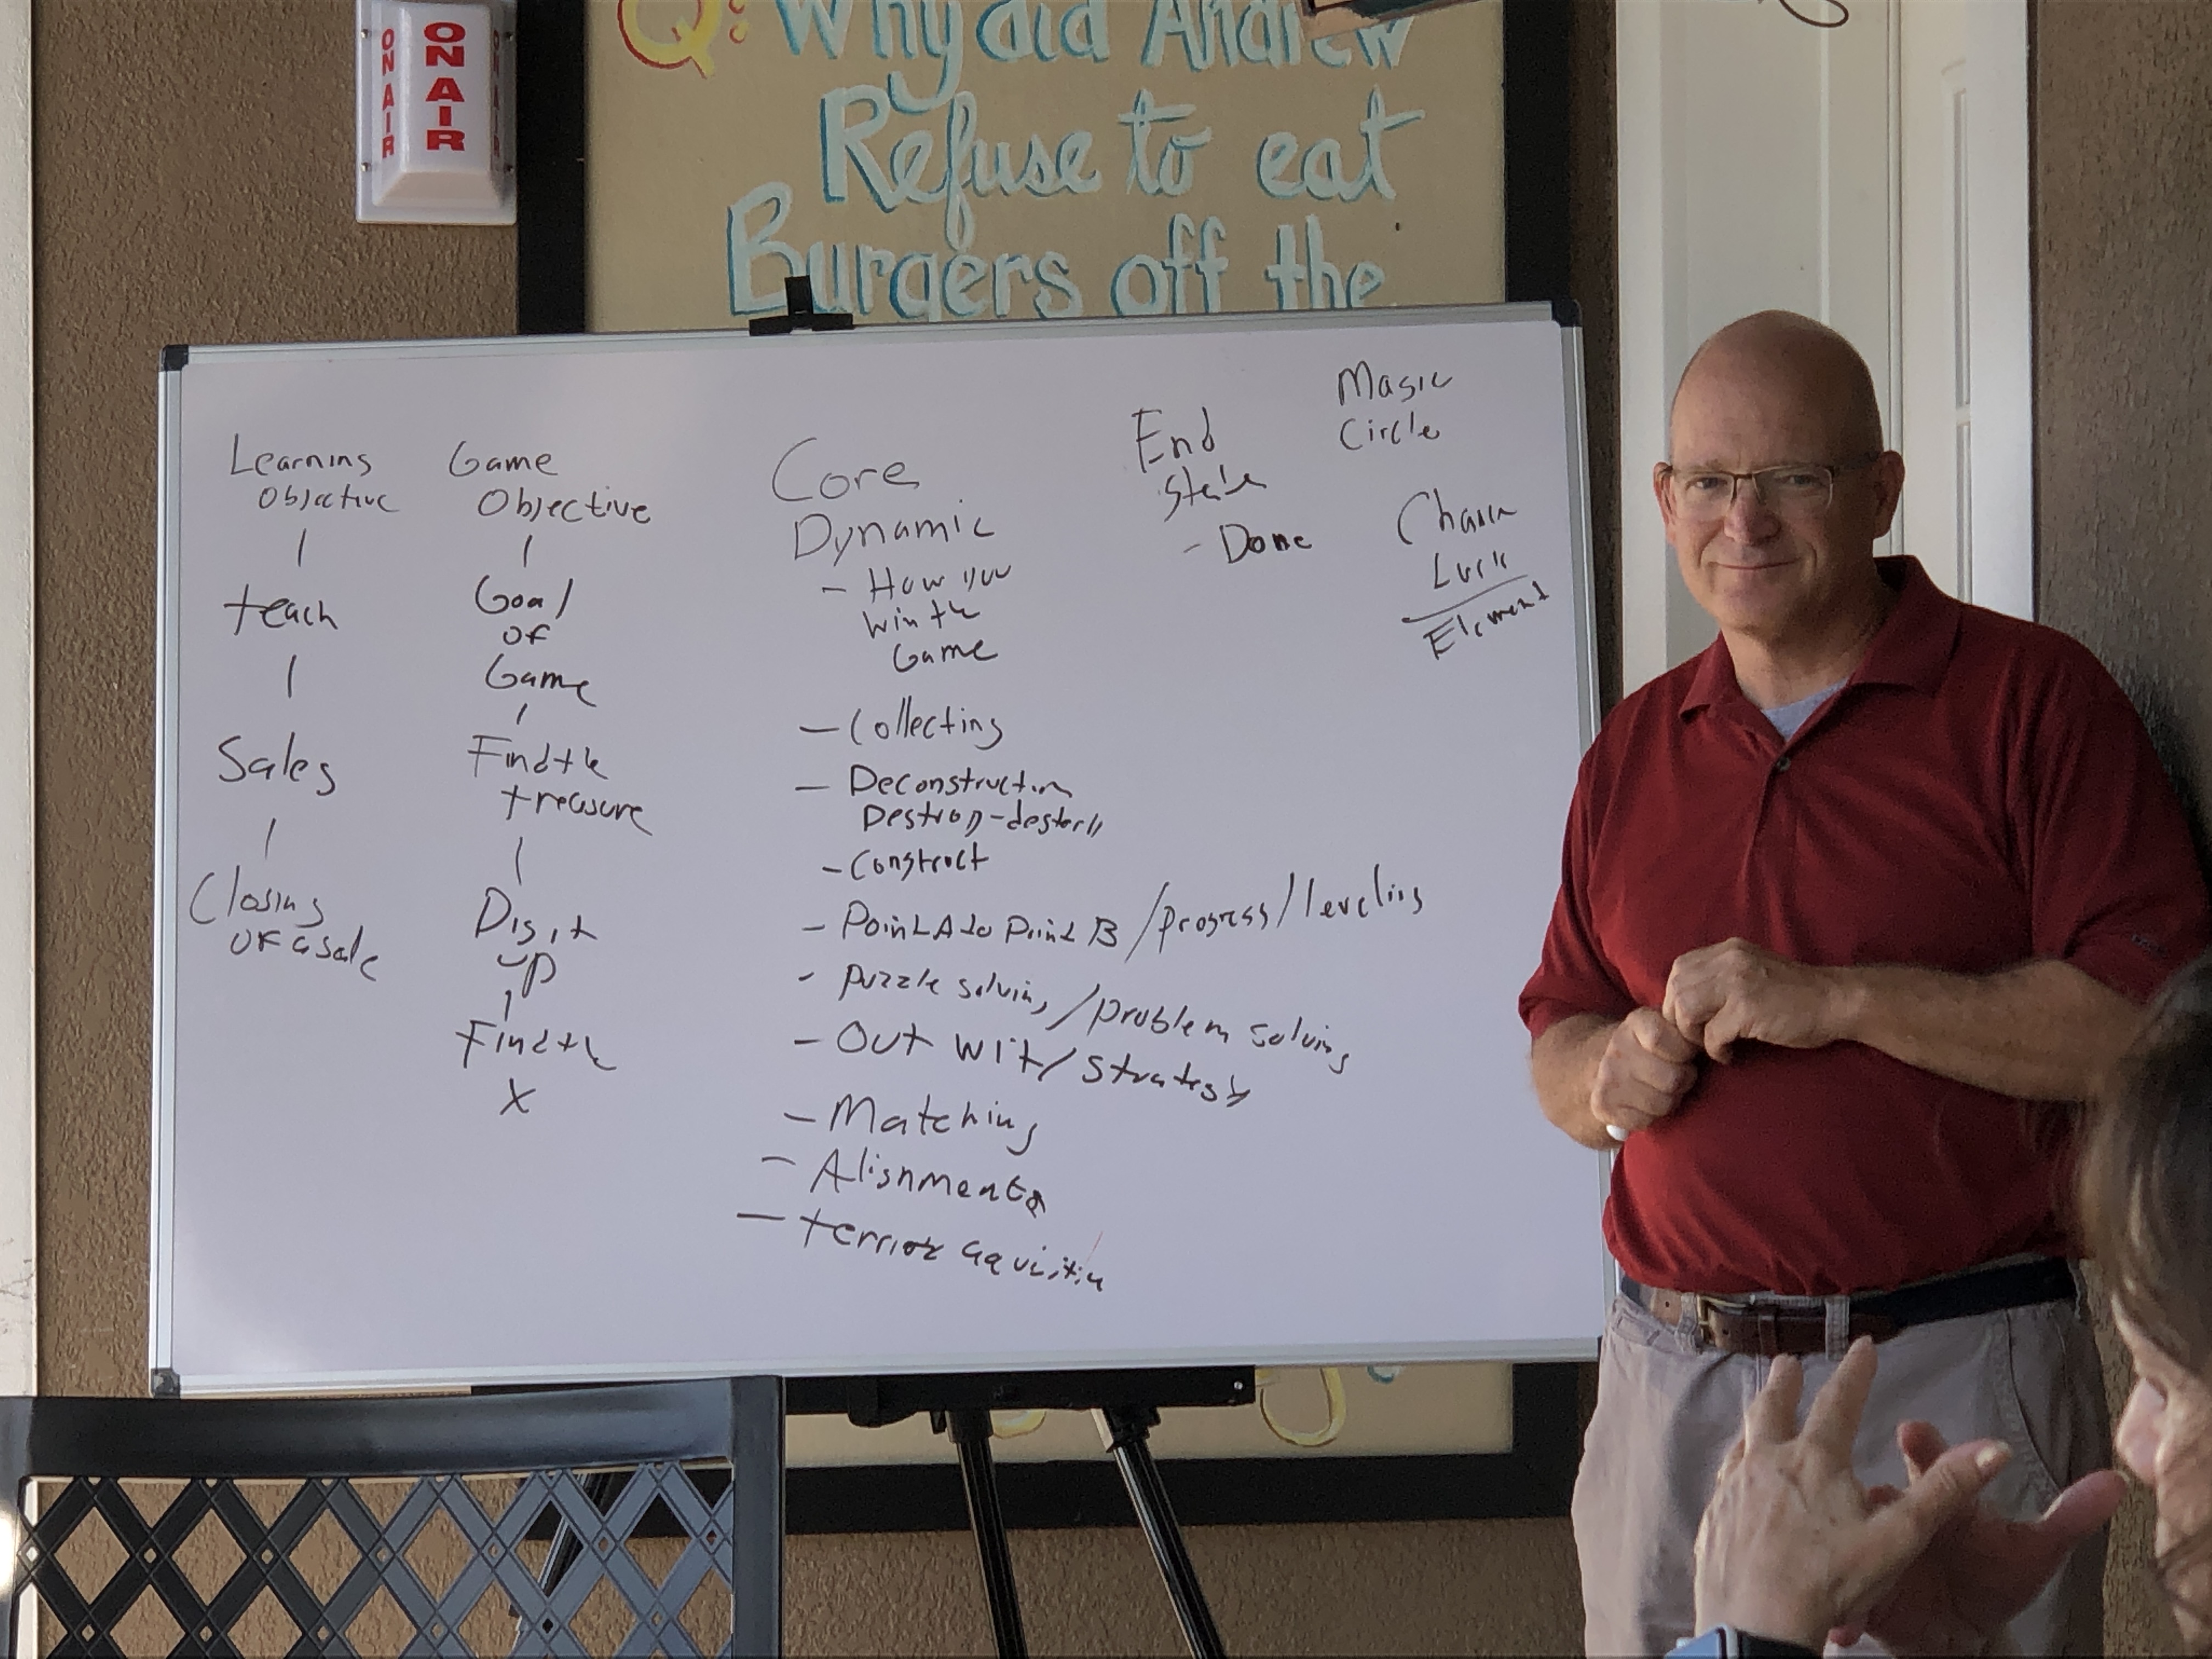 ON AIR
ON AIR
ON AIR
Q: Why did Andrew
Refuse to eat
Burgers off the
Learning
Objective
teach
Sales
Closing
OF a sale
Game
Objective
Goal
OF
Game
Find the
treasure
Dig it
up
Find the
X
Core
Dynamic
- How you
Win the
Game
- Collecting
- Deconstruction
Destroy-
- Construct
- Point A to Point B / progress / leveling
- Puzzle solving / problem solving
- Out wit / Strategy
- Matching
- Alignment
- 
End
State
- Done
Magic
Circle
Chance
Luck
Element